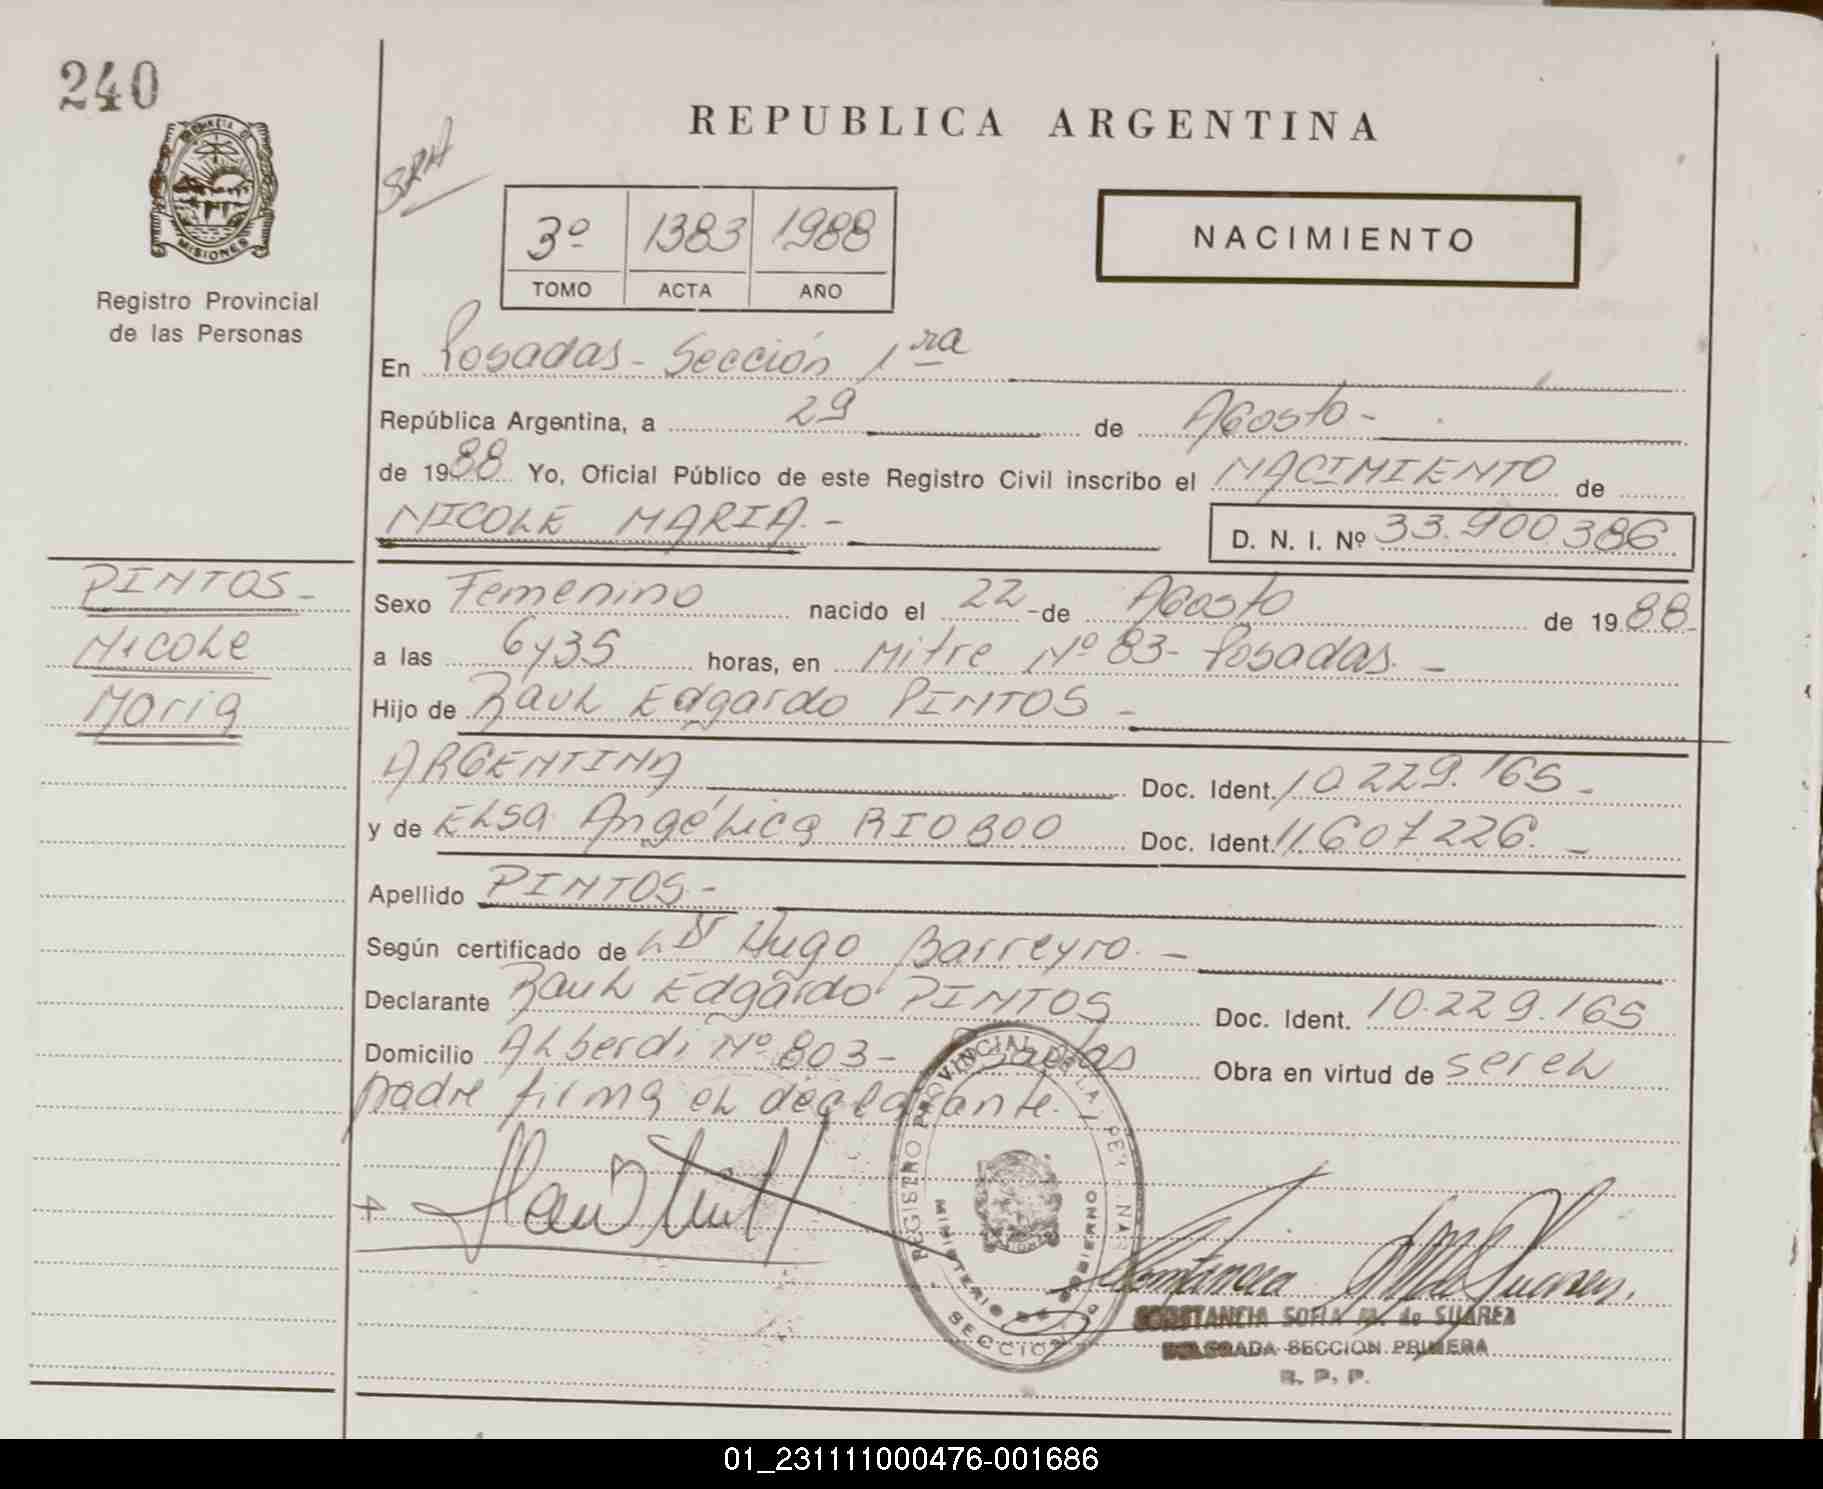 240
PROVINCIA DE
MISIONES
Registro Provincial
de las Personas
REPUBLICA ARGENTINA
3º 1383 1988
TOMO ACTA AÑO
NACIMIENTO
En Posadas - Sección 1ra
República Argentina, a 29 de Agosto -
de 1988 Yo, Oficial Público de este Registro Civil inscribo el NACIMIENTO de
NICOLE MARIA. - D. N. I. Nº 33.900386
PINTOS -
Nicole
Maria
Sexo Femenino nacido el 22 - de Agosto de 1988 -
a las 6y35 horas, en Mitre Nº 83 - Posadas. -
Hijo de Raul Edgardo PINTOS -
ARGENTINA Doc. Ident. 10.229.165 -
y de Elsa Angélica RIOBOO Doc. Ident. 11607226. -
Apellido PINTOS -
Según certificado de Hugo Barreyro. -
Declarante Raul Edgardo PINTOS Doc. Ident. 10.229.165
Domicilio Alberdi Nº 803 - Posadas Obra en virtud de ser el
padre firma el declarante.
REGISTRO PROVINCIAL DE LAS PERSONAS
MINISTERIO DE GOBIERNO
SECCION
CONSTANCIA SOFIA M. de SUAREZ
DELEGADA SECCION PRIMERA
R. P. P.
01_231111000476-001686